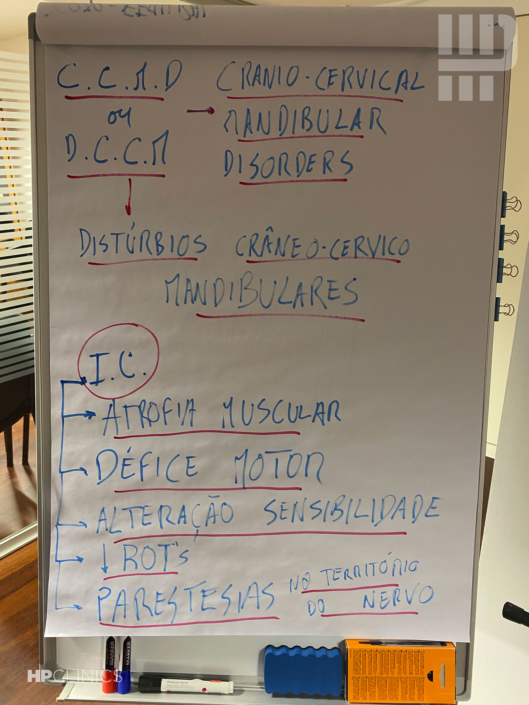 C.C.M.D
ou
D.C.C.M
CRANIO-CERVICAL
MANDIBULAR
DISORDERS
DISTÚRBIOS CRÂNEO-CERVICO
MANDIBULARES
I.C.
ATROFIA MUSCULAR
DÉFICE MOTOR
ALTERAÇÃO SENSIBILIDADE
↓ ROT's
PARESTESIAS NO TERRITÓRIO
DO NERVO
HPCLINICS